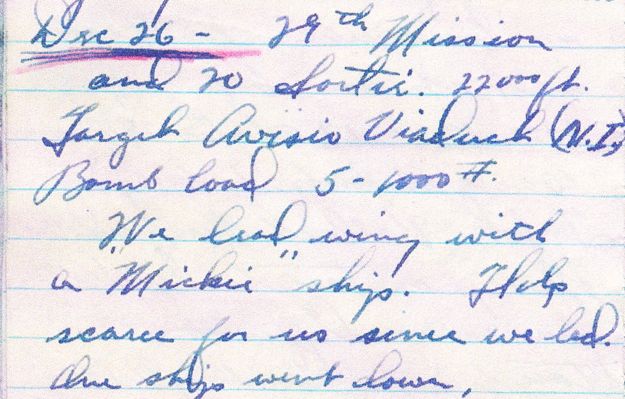 Dec 26 - 29th Mission
and 20 Sortie. 22000 ft.
Target Avisio Viaduct (N.I.)
Bomb load 5-1000 #.
We lead wing with
a "Mickie" ship. Flak
scarce for us since we led.
One ship went down,